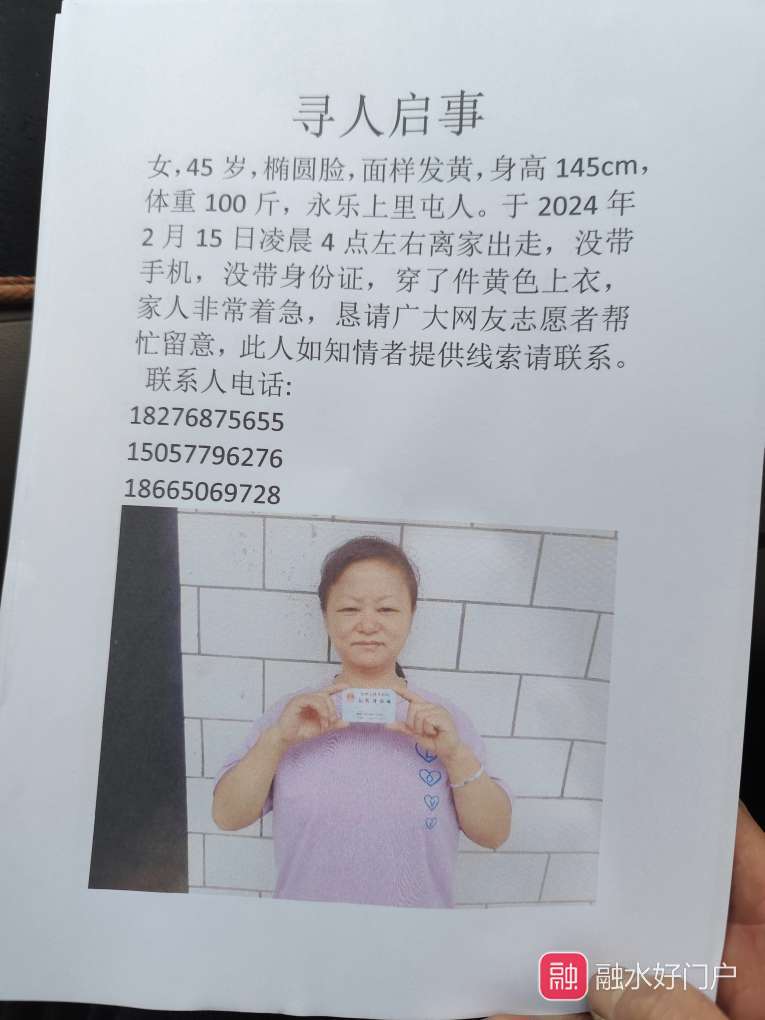 寻人启事
女,45 岁,椭圆脸,面样发黄,身高 145cm,
体重 100 斤，永乐上里屯人。于 2024 年
2 月 15 日凌晨 4 点左右离家出走，没带
手机，没带身份证，穿了件黄色上衣，
家人非常着急，恳请广大网友志愿者帮
忙留意，此人如知情者提供线索请联系。
联系人电话:
18276875655
15057796276
18665069728
融 融水好门户